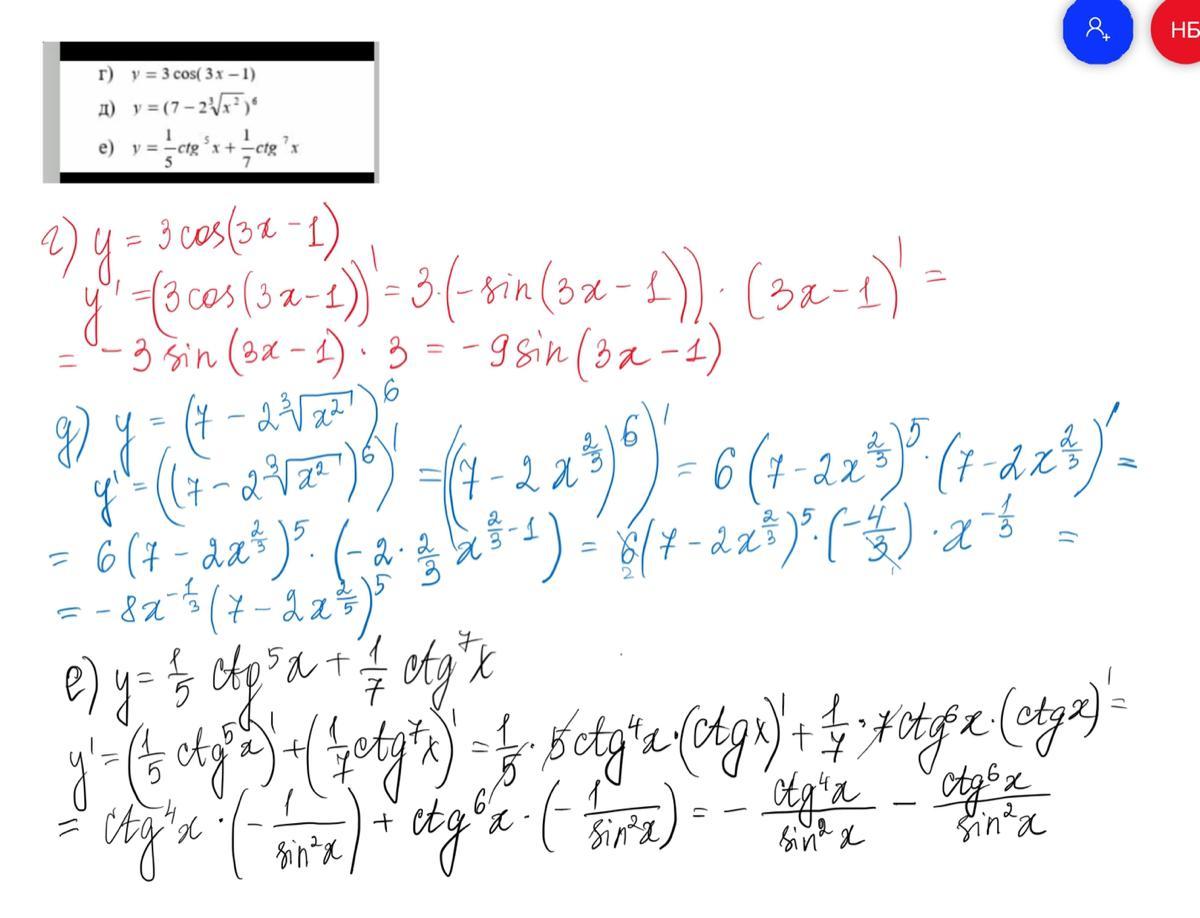 НБ
г) y = 3 cos( 3x – 1)
д) y = (7 – 2∛x²)⁶
е) y = 1/5 ctg ⁵x + 1/7 ctg ⁷x
г) y = 3cos(3x – 1)
y' = (3cos(3x – 1))' = 3·(–sin(3x – 1)) · (3x – 1)' =
= –3 sin(3x – 1) · 3 = –9sin(3x – 1)
д) y = (7 – 2∛x²)⁶
y' = ((7 – 2∛x²)⁶)' = ((7 – 2x^(2/3))⁶)' = 6(7 – 2x^(2/3))⁵ · (7 – 2x^(2/3))' =
= 6(7 – 2x^(2/3))⁵ · (–2 · 2/3 x^(2/3 – 1)) = 6(7 – 2x^(2/3))⁵ · (–4/3) · x^(–1/3) =
2 1
= –8x^(–1/3) (7 – 2x^(2/5))⁵
е) y = 1/5 ctg⁵x + 1/7 ctg⁷x
y' = (1/5 ctg⁵x)' + (1/7 ctg⁷x)' = 1/5 · 5ctg⁴x·(ctgx)' + 1/7 · 7ctg⁶x·(ctgx)' =
= ctg⁴x · (–1/sin²x) + ctg⁶x · (–1/sin²x) = – ctg⁴x/sin²x – ctg⁶x/sin²x